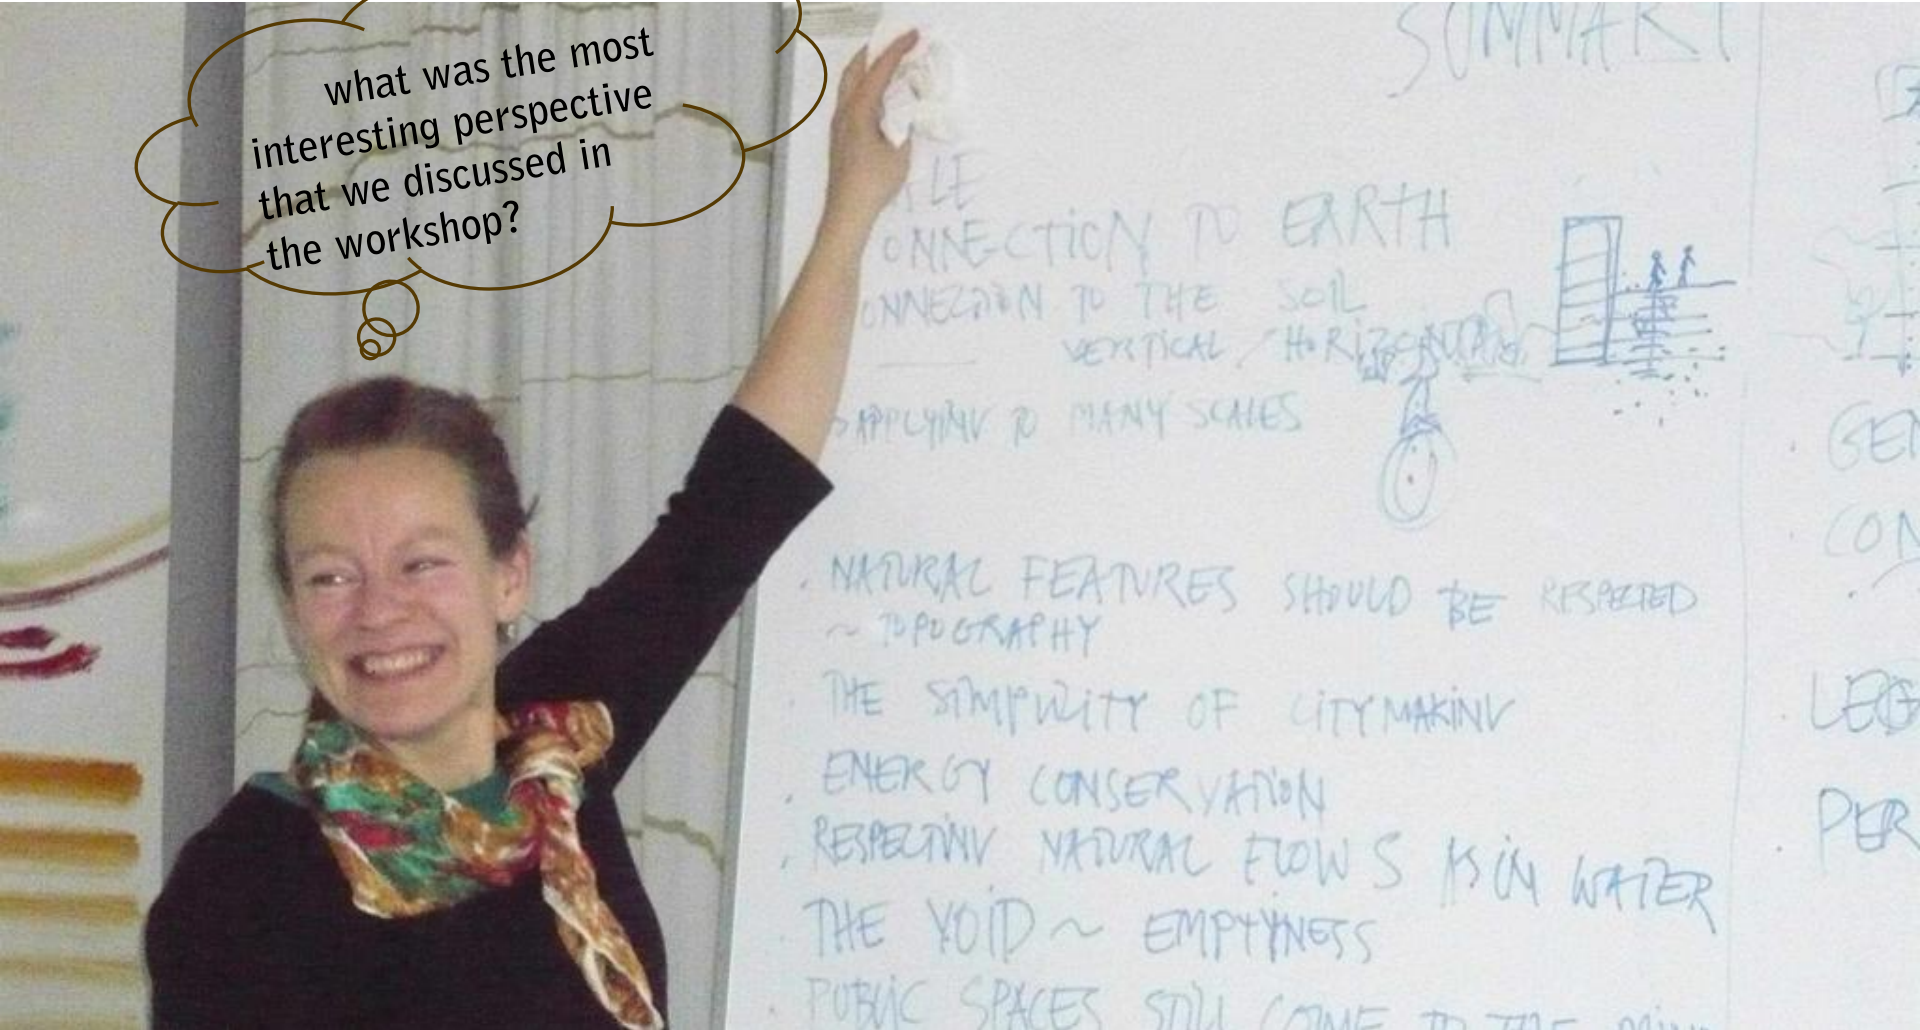 what was the most
interesting perspective
that we discussed in
the workshop?
SUMMARY
LE
ONNECTION TO EARTH
ONNECTION TO THE SOIL
VERTICAL / HORIZONTAL
> APPLYING TO MANY SCALES
. NATURAL FEATURES SHOULD BE RESPECTED
~ TOPOGRAPHY
. THE SIMPLICITY OF CITYMAKING
. ENERGY CONSERVATION
. RESPECTING NATURAL FLOWS AS IN WATER
. THE VOID ~ EMPTYNESS
. PUBLIC SPACES STILL COME TO THE
. GEN
. CON
. LEG
. PER